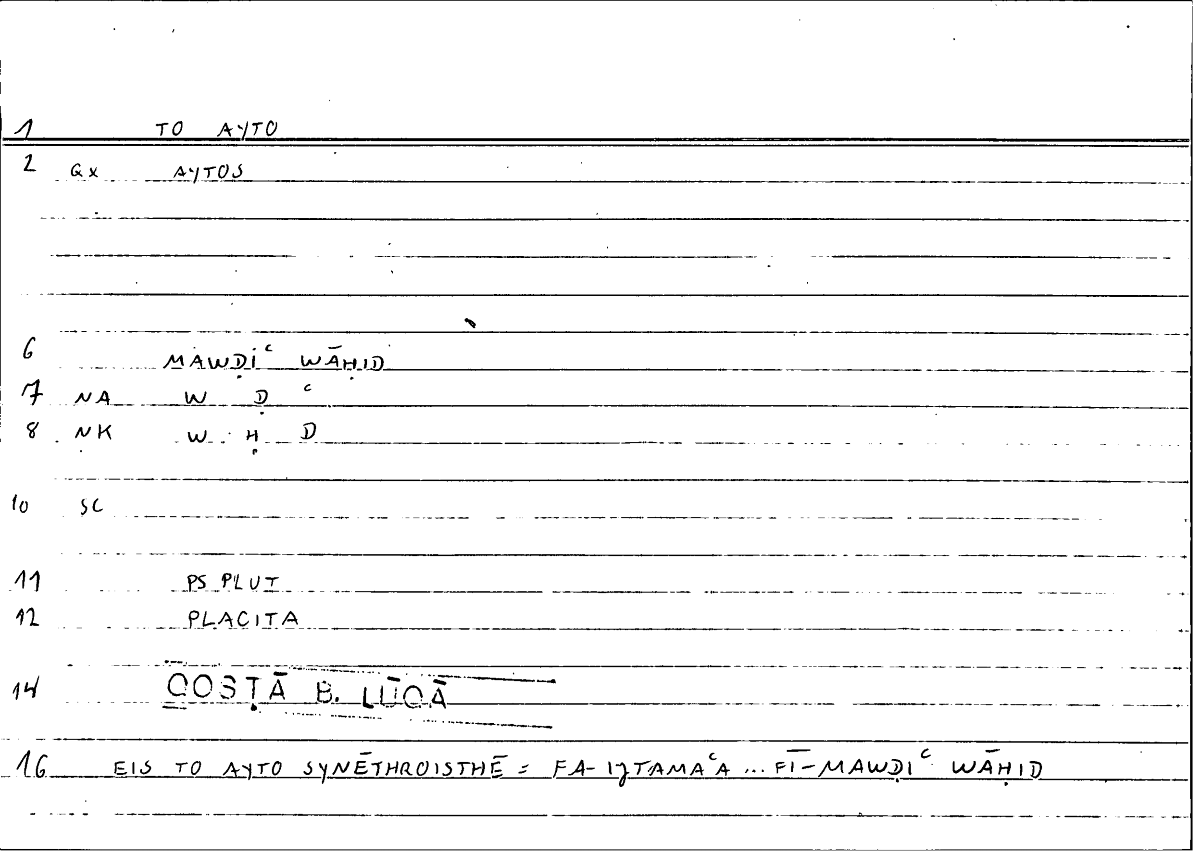 1 TO AYTO
2 GX AYTOS
6 MAWḌIʿ WĀḤID
7 NA W Ḍ ʿ
8 NK W Ḥ D
10 SC
11 PS PLUT
12 PLACITA
14 QOSṬĀ B. LŪQĀ
16 EIS TO AYTO SYNĒTHROISTHĒ = FA-IJTAMAʿA ... FĪ-MAWḌIʿ WĀḤID